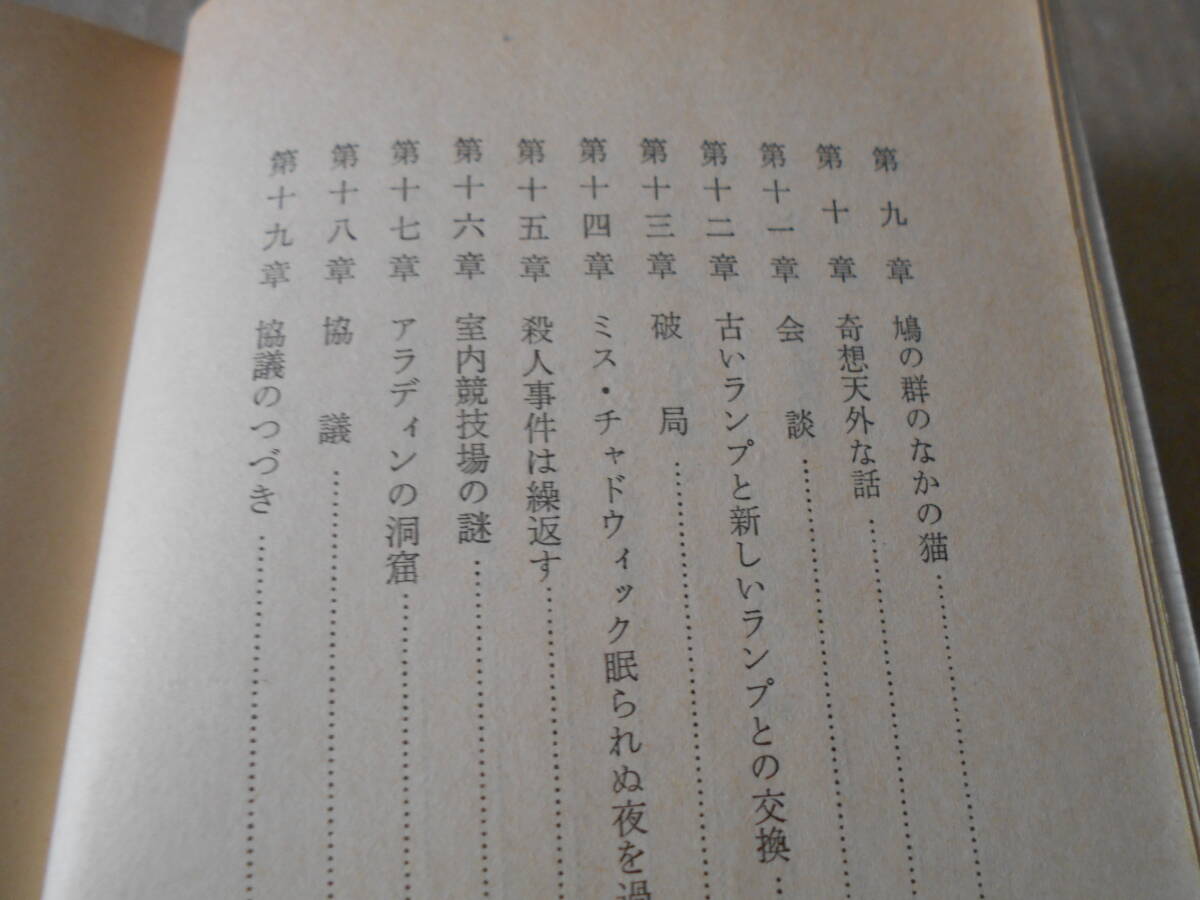 第九章 鳩の群のなかの猫…………
第十章 奇想天外な話…………
第十一章 会談…………
第十二章 古いランプと新しいランプとの交換…
第十三章 破局…………
第十四章 ミス・チャドウィック眠られぬ夜を過
第十五章 殺人事件は繰返す…………
第十六章 室内競技場の謎…………
第十七章 アラディンの洞窟…………
第十八章 協議…………
第十九章 協議のつづき…………